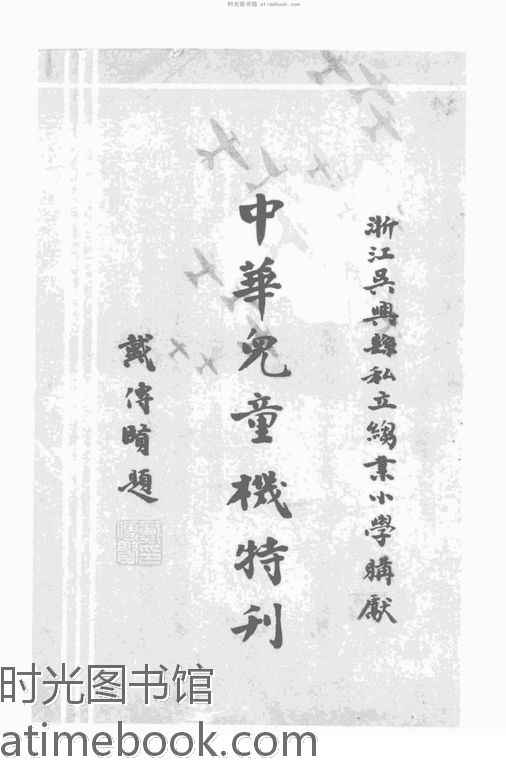 时光图书馆 atimebook.com
浙江吳興縣私立縐業小學購獻
中華兒童機特刊
戴傳賢題
时光图书馆
atimebook.com